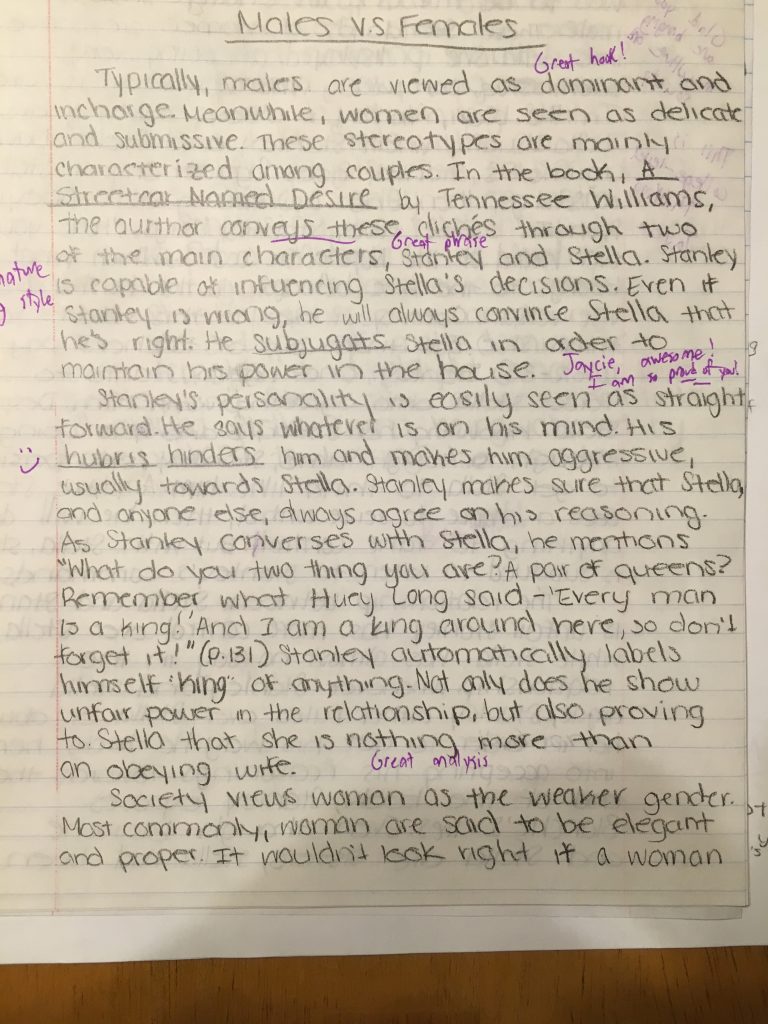 Males V.S Females
Great hook!
Typically, males are viewed as dominant and
incharge. Meanwhile, women are seen as delicate
and submissive. These stereotypes are mainly
characterized among couples. In the book, A
Streetcar Named Desire by Tennessee Williams,
the aurthor conveys these clichés through two
Great phrase
of the main characters, Stanley and Stella. Stanley
is capable of infuencing Stella's decisions. Even if
style
Stanley is wrong, he will always convince Stella that
he's right. He subjugats Stella in order to
maintain his power in the house.
Jaycie, awesome!
I am so proud of you!
Stanley's personality is easily seen as straight
forward. He says whatever is on his mind. His
hubris hinders him and makes him aggressive,
usually towards Stella. Stanley makes sure that Stella,
and anyone else, always agree on his reasoning.
As Stanley converses with Stella, he mentions
"What do you two thing you are? A pair of queens?
Remember what Huey Long said - 'Every man
is a king!' And I am a king around here, so don't
forget it!" (p.131) Stanley automatically labels
himself "king" of anything. Not only does he show
unfair power in the relationship, but also proving
to. Stella that she is nothing more than
an obeying wife.
Great analysis
Society views woman as the weaker gender.
Most commonly, woman are said to be elegant
and proper. It wouldn't look right if a woman